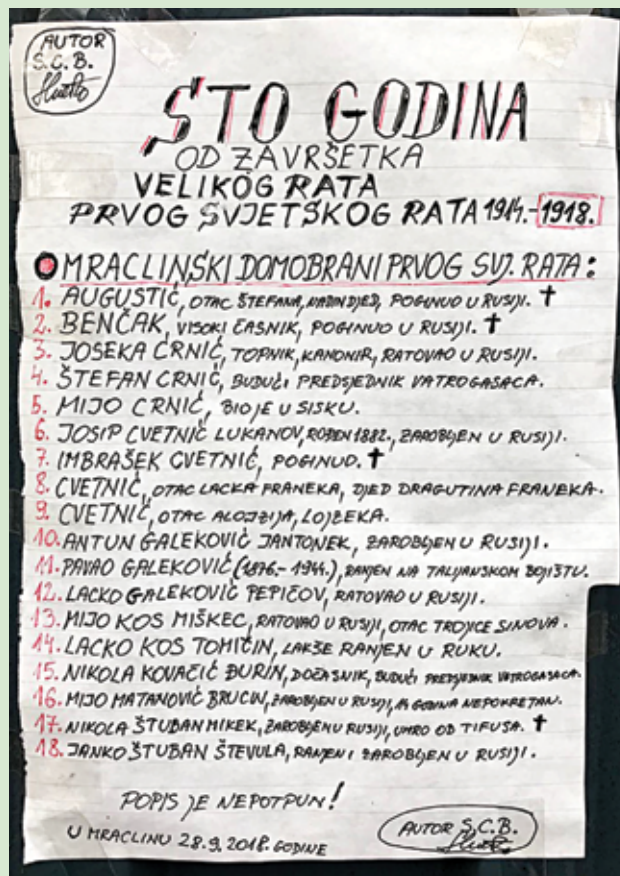 AUTOR
S.C.B.
STO GODINA
OD ZAVRŠETKA
VELIKOG RATA
PRVOG SVJETSKOG RATA 1914.-1918.
MRACLINSKI DOMOBRANI PRVOG SVJ. RATA:
1. AUGUSTIĆ, OTAC ŠTEFANA, NADIN DJED, POGINUO U RUSIJI. ✝
2. BENČAK, VISOKI ČASNIK, POGINUO U RUSIJI. ✝
3. JOSEKA CRNIĆ, TOPNIK, KANONIR, RATOVAO U RUSIJI.
4. ŠTEFAN CRNIĆ, BUDUĆI PREDSJEDNIK VATROGASACA.
5. MIJO CRNIĆ, BIO JE U SISKU.
6. JOSIP CVETNIĆ LUKANOV, ROĐEN 1882., ZAROBLJEN U RUSIJI.
7. IMBRAŠEK CVETNIĆ, POGINUO. ✝
8. CVETNIĆ, OTAC LACKA FRANEKA, DJED DRAGUTINA FRANEKA.
9. CVETNIĆ, OTAC ALOJZIJA, LOJZEKA.
10. ANTUN GALEKOVIĆ JANTONEK, ZAROBLJEN U RUSIJI.
11. PAVAO GALEKOVIĆ (1876.-1944.), RANJEN NA TALIJANSKOM BOJIŠTU.
12. LACKO GALEKOVIĆ PEPIČOV, RATOVAO U RUSIJI.
13. MIJO KOS MIŠKEC, RATOVAO U RUSIJI, OTAC TROJICE SINOVA.
14. LACKO KOS TOMIČIN, LAKŠE RANJEN U RUKU.
15. NIKOLA KOVAČIĆ ĐURIN, DOČASNIK, BUDUĆI PREDSJEDNIK VATROGASACA.
16. MIJO MATANOVIĆ BRUCIN, ZAROBLJEN U RUSIJI, GODINA NEPOKRETAN.
17. NIKOLA ŠTUBAN MIKEK, ZAROBLJEN U RUSIJI, UMRO OD TIFUSA. ✝
18. JANKO ŠTUBAN ŠTEVULA, RANJEN I ZAROBLJEN U RUSIJI.
POPIS JE NEPOTPUN!
U MRACLINU 28.9.2018. GODINE
AUTOR S.C.B.